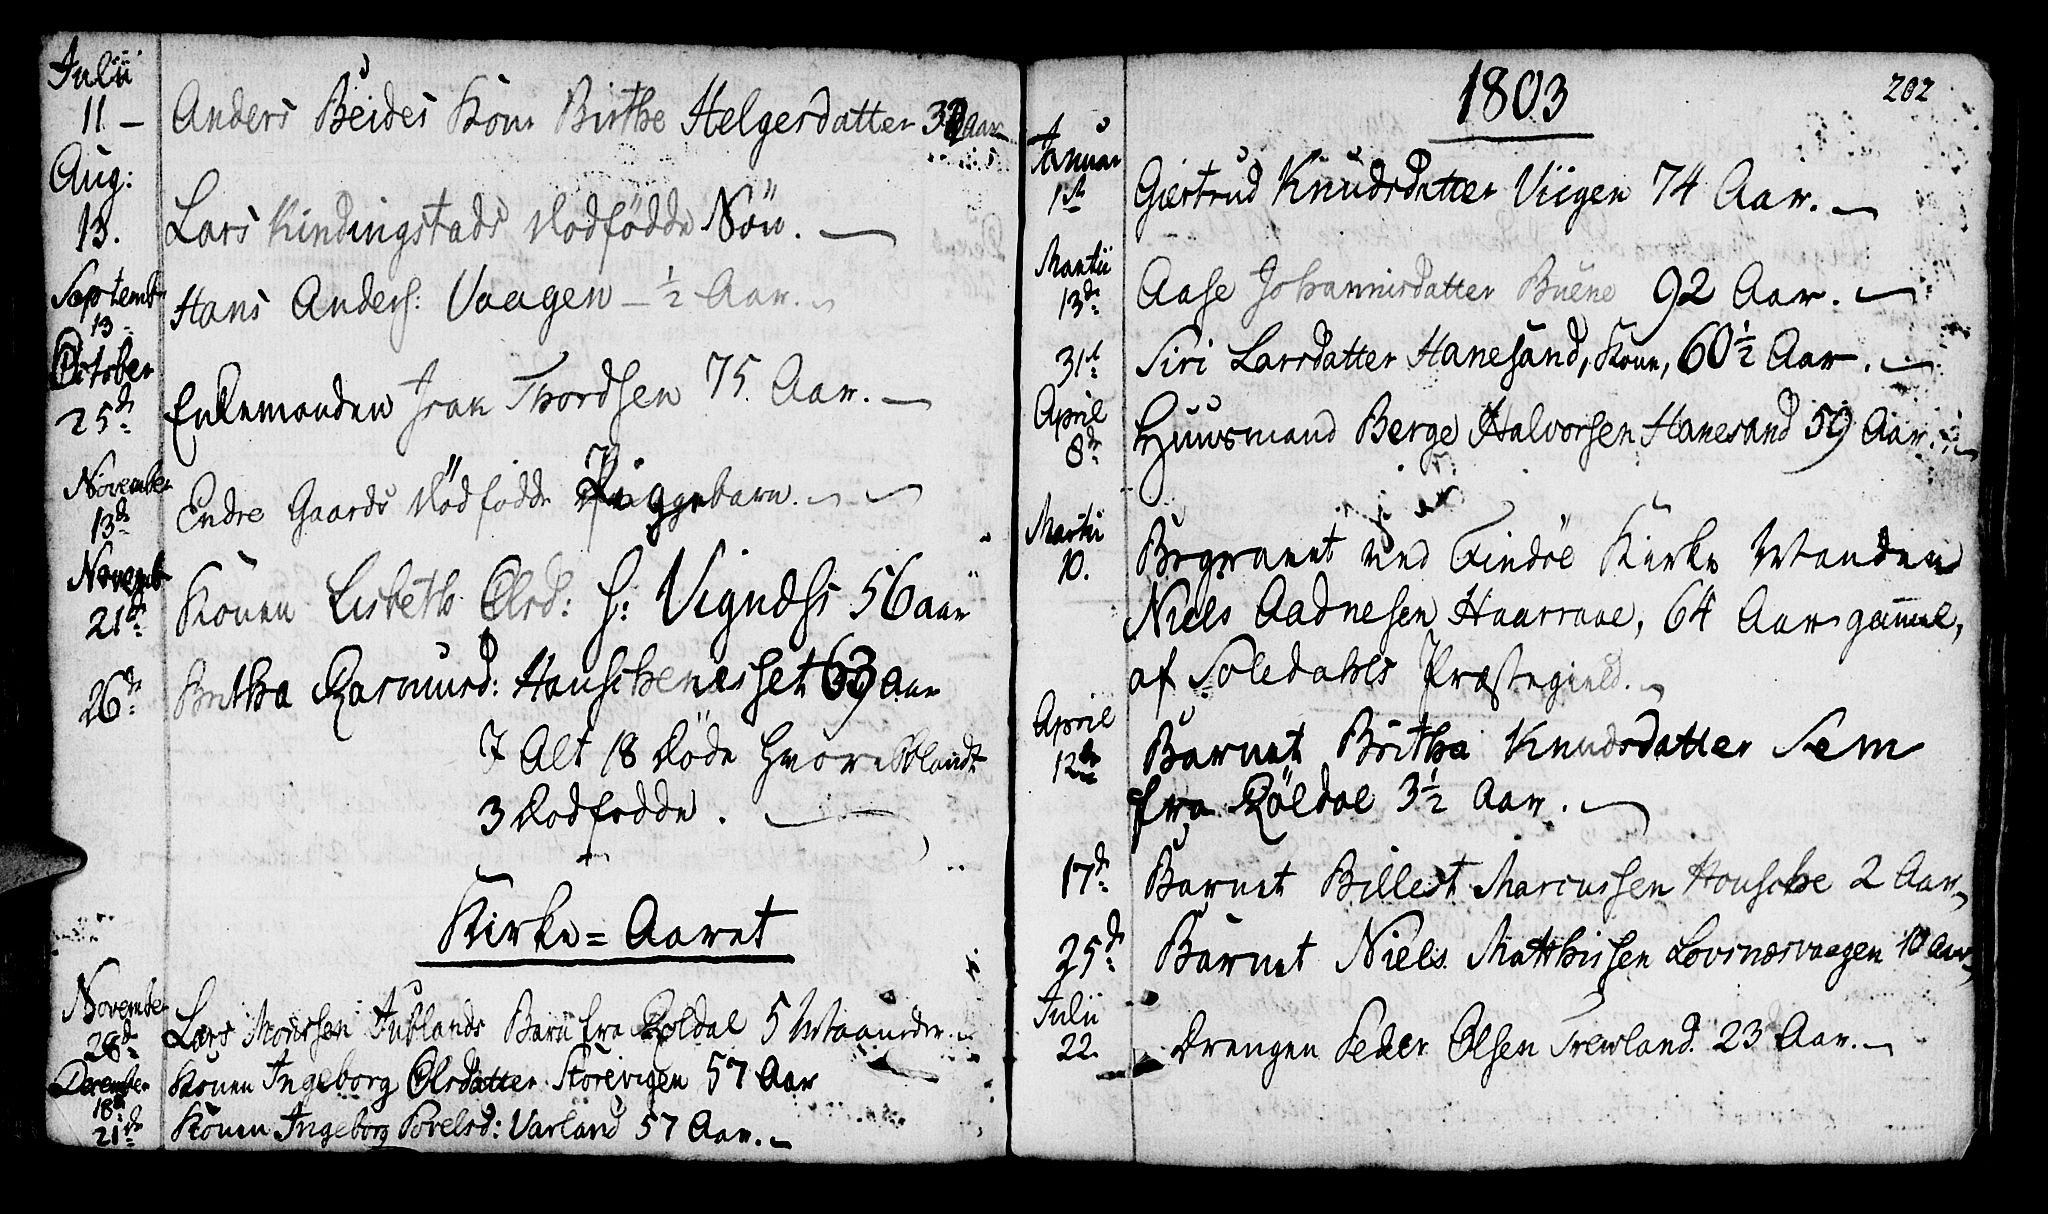 Julii
11 — Anders Beides Kone Birthe Helgesdatter 39 Aar
Aug:
13. Lars Kindingstads dødfödde Sön. —
Septembr
13 Hans Anders: Vaagen — ½ Aar. —
October
25de Enkemanden Isak Thordsen 75. Aar. —
November
13de Endre Gaards dödfödde Piggebarn. —
Novemb
21de Konen Lisbeth Olsd: H: Vignæss 56 aar
26de Britha Rasmusd: Houschenesset 63 Aar
I Alt 18 döde hvoriblandt
3 dodfodde.
Kirke = Aaret
November
28de Lars Monssen Jublands Barn fra Röldal 5 Maaneder. —
December
18de Konen Ingeborg Olsdatter Storevigen 57 Aar
21de Konen Ingeborg Povelsd: Varland 57 Aar. —
202
1803
Januar
1ste Giertrud Knudsdatter Viigen 74 Aar. —
Martii
13de Aase Johannisdatter Buene 92 Aar. —
31te Siri Larsdatter Hanesand, Kone, 60½ Aar. —
April
8de Huusmand Berge Halvorsen Hanesand 59 Aar. —
Martii
10. Begravet ved Findöe Kirke Manden
Niels Aadnesen Haarraae, 64 Aar gammel,
af Soledahls Præstegield. —
April
12te Barnet Britha Knudsdatter Sem
fra Röldal 3½ Aar. —
17de Barnet Billest Marcussen Housche 2 Aar,
25de Barnet Niels Matthissen Lovsnæsvaagen 10 Aar,
Julii
22. Drengen Peder Olsen Trewland. 23 Aar. —